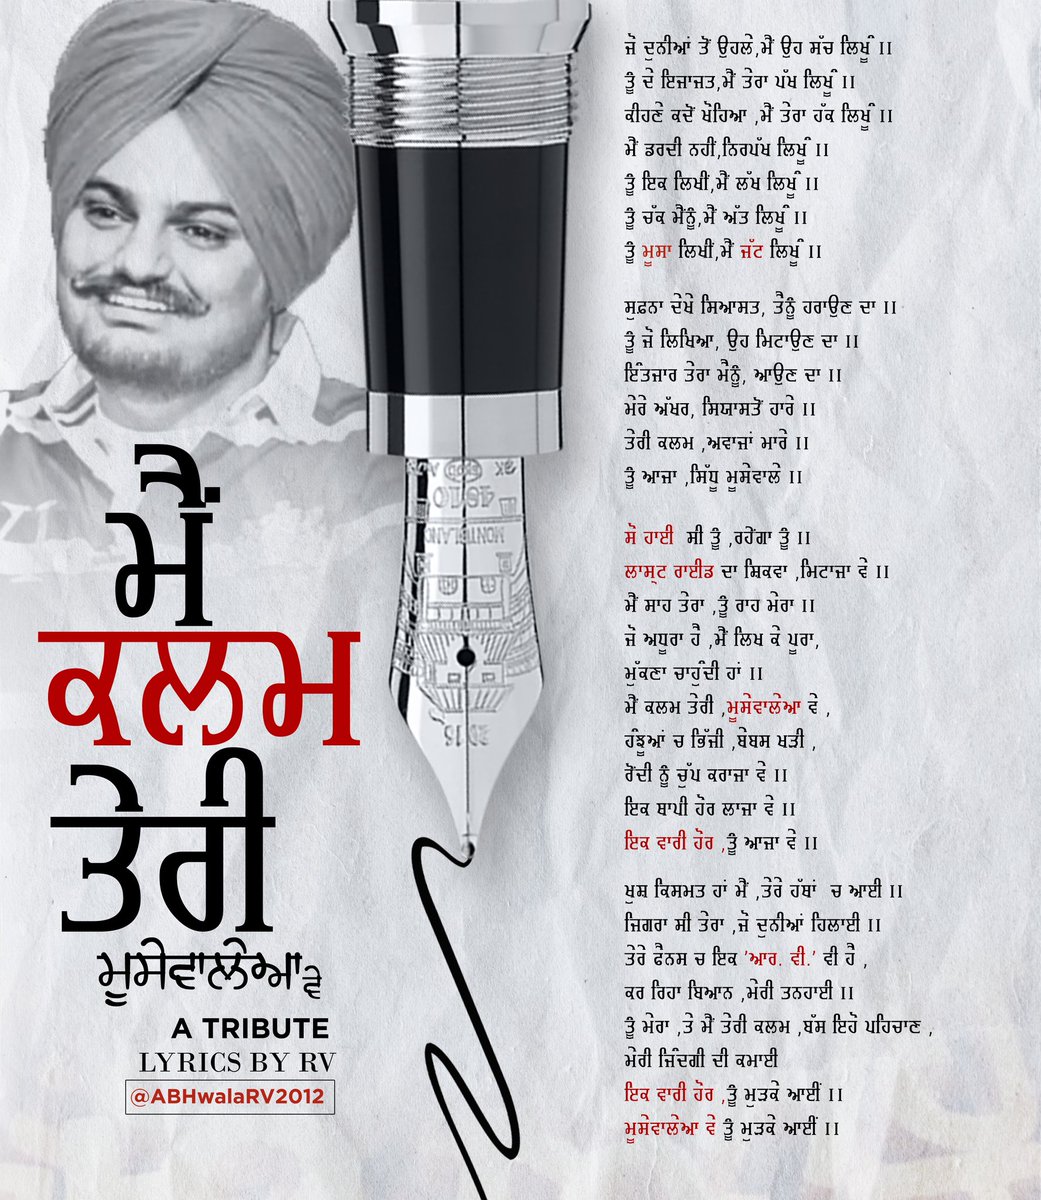 ਮੈਂ
ਕਲਮ
ਤੇਰੀ
ਮੂਸੇਵਾਲੇਆ ਵੇ
A TRIBUTE
LYRICS BY RV
@ABHwalaRV2012
ਜੋ ਦੁਨੀਆਂ ਤੋਂ ਉਹਲੇ,ਮੈਂ ਉਹ ਸੱਚ ਲਿਖੂੰ II
ਤੂੰ ਦੇ ਇਜਾਜਤ,ਮੈਂ ਤੇਰਾ ਪੱਖ ਲਿਖੂੰ II
ਕੀਹਣੇ ਕਦੋਂ ਖੋਹਿਆ ,ਮੈਂ ਤੇਰਾ ਹੱਕ ਲਿਖੂੰ II
ਮੈਂ ਡਰਦੀ ਨਹੀਂ,ਨਿਰਪੱਖ ਲਿਖੂੰ II
ਤੂੰ ਇਕ ਲਿਖੀਂ,ਮੈਂ ਲੱਖ ਲਿਖੂੰ II
ਤੂੰ ਚੱਕ ਮੈਂਨੂੰ,ਮੈਂ ਅੱਤ ਲਿਖੂੰ II
ਤੂੰ ਮੂਸਾ ਲਿਖੀ,ਮੈਂ ਜੱਟ ਲਿਖੂੰ II
ਸੁਫ਼ਨਾ ਦੇਖੇ ਸਿਆਸਤ, ਤੈਨੂੰ ਹਰਾਉਣ ਦਾ II
ਤੂੰ ਜੋ ਲਿਖਿਆ, ਉਹ ਮਿਟਾਉਣ ਦਾ II
ਇੰਤਜਾਰ ਤੇਰਾ ਮੈਨੂੰ, ਆਉਣ ਦਾ II
ਮੇਰੇ ਅੱਖਰ, ਸਿਯਾਸਤੋਂ ਹਾਰੇ II
ਤੇਰੀ ਕਲਮ ,ਅਵਾਜ਼ਾਂ ਮਾਰੇ II
ਤੂੰ ਆਜਾ ,ਸਿੱਧੂ ਮੂਸੇਵਾਲੇ II
ਸੋ ਹਾਈ ਸੀ ਤੂੰ ,ਰਹੇਂਗਾ ਤੂੰ II
ਲਾਸ੍ਟ ਰਾਈਡ ਦਾ ਸ਼ਿਕਵਾ ,ਮਿਟਾਜਾ ਵੇ II
ਮੈਂ ਸਾਹ ਤੇਰਾ ,ਤੂੰ ਰਾਹ ਮੇਰਾ II
ਜੋ ਅਧੂਰਾ ਹੈ ,ਮੈਂ ਲਿਖ ਕੇ ਪੂਰਾ,
ਮੁੱਕਣਾ ਚਾਹੁੰਦੀ ਹਾਂ II
ਮੈਂ ਕਲਮ ਤੇਰੀ ,ਮੂਸੇਵਾਲੇਆ ਵੇ ,
ਹੰਝੂਆਂ ਚ ਭਿੱਜੀ ,ਬੇਬਸ ਖੜੀ ,
ਰੋਂਦੀ ਨੂੰ ਚੁੱਪ ਕਰਾਜਾ ਵੇ II
ਇਕ ਥਾਪੀ ਹੋਰ ਲਾਜਾ ਵੇ II
ਇਕ ਵਾਰੀ ਹੋਰ ,ਤੂੰ ਆਜਾ ਵੇ II
ਖੁਸ਼ ਕਿਸਮਤ ਹਾਂ ਮੈਂ ,ਤੇਰੇ ਹੱਥਾਂ ਚ ਆਈ II
ਜਿਗਰਾ ਸੀ ਤੇਰਾ ,ਜੋ ਦੁਨੀਆਂ ਹਿਲਾਈ II
ਤੇਰੇ ਫੈਨਸ ਚ ਇਕ 'ਆਰ. ਵੀ.' ਵੀ ਹੈ ,
ਕਰ ਰਿਹਾ ਬਿਆਨ ,ਮੇਰੀ ਤਨਹਾਈ II
ਤੂੰ ਮੇਰਾ ,ਤੇ ਮੈਂ ਤੇਰੀ ਕਲਮ ,ਬੱਸ ਇਹੋ ਪਹਿਚਾਣ ,
ਮੇਰੀ ਜ਼ਿੰਦਗੀ ਦੀ ਕਮਾਈ
ਇਕ ਵਾਰੀ ਹੋਰ ,ਤੂੰ ਮੁੜਕੇ ਆਈਂ II
ਮੂਸੇਵਾਲੇਆ ਵੇ ਤੂੰ ਮੁੜਕੇ ਆਈਂ II